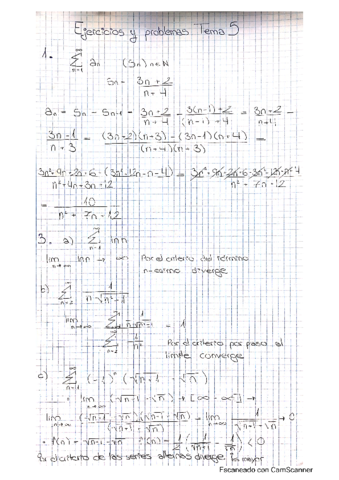 Ejercicios y problemas Tema 5
1. ∞ Σ n=1 an (Sn) n∈N
Sn = 3n + 2 / n + 4
an = Sn - Sn-1 = 3n + 2 / n + 4 - 3(n-1) + 2 / (n-1) + 4 = 3n + 2 / n+4 -
3n - 1 / n + 3 = (3n+2)(n+3) - (3n-1)(n+4) / (n+4)(n+3) =
3n²+9n+2n+6 - (3n²+12n-n-4) / n²+4n+3n+12 = 3n²+9n+2n+6-3n²-12n+n+4 / n²+7n+12
= 10 / n² + 7n + 12
3. a) ∞ Σ n=1 ln n
lim n→∞ ln n → ∞ Por el criterio del término
n-esimo diverge
b) ∞ Σ n=2 1 / n√n²-1
lim n→∞ = 1
Por el criterio por paso al
límite converge
c) ∞ Σ n=1 (-1)ⁿ (√n+1 - √n)
= lim n→∞ (√n+1 - √n) → [∞ - ∞] →
lim n→∞ (√n+1 - √n)(√n+1 + √n) / (√n+1 + √n) = lim n→∞ 1 / √n+1 + √n → 0
f(n) = √n+1 - √n f'(n) = 1/2 (1/√n+1 - 1/√n) < 0
criterio de las series alternas diverge.
Escaneado con CamScanner